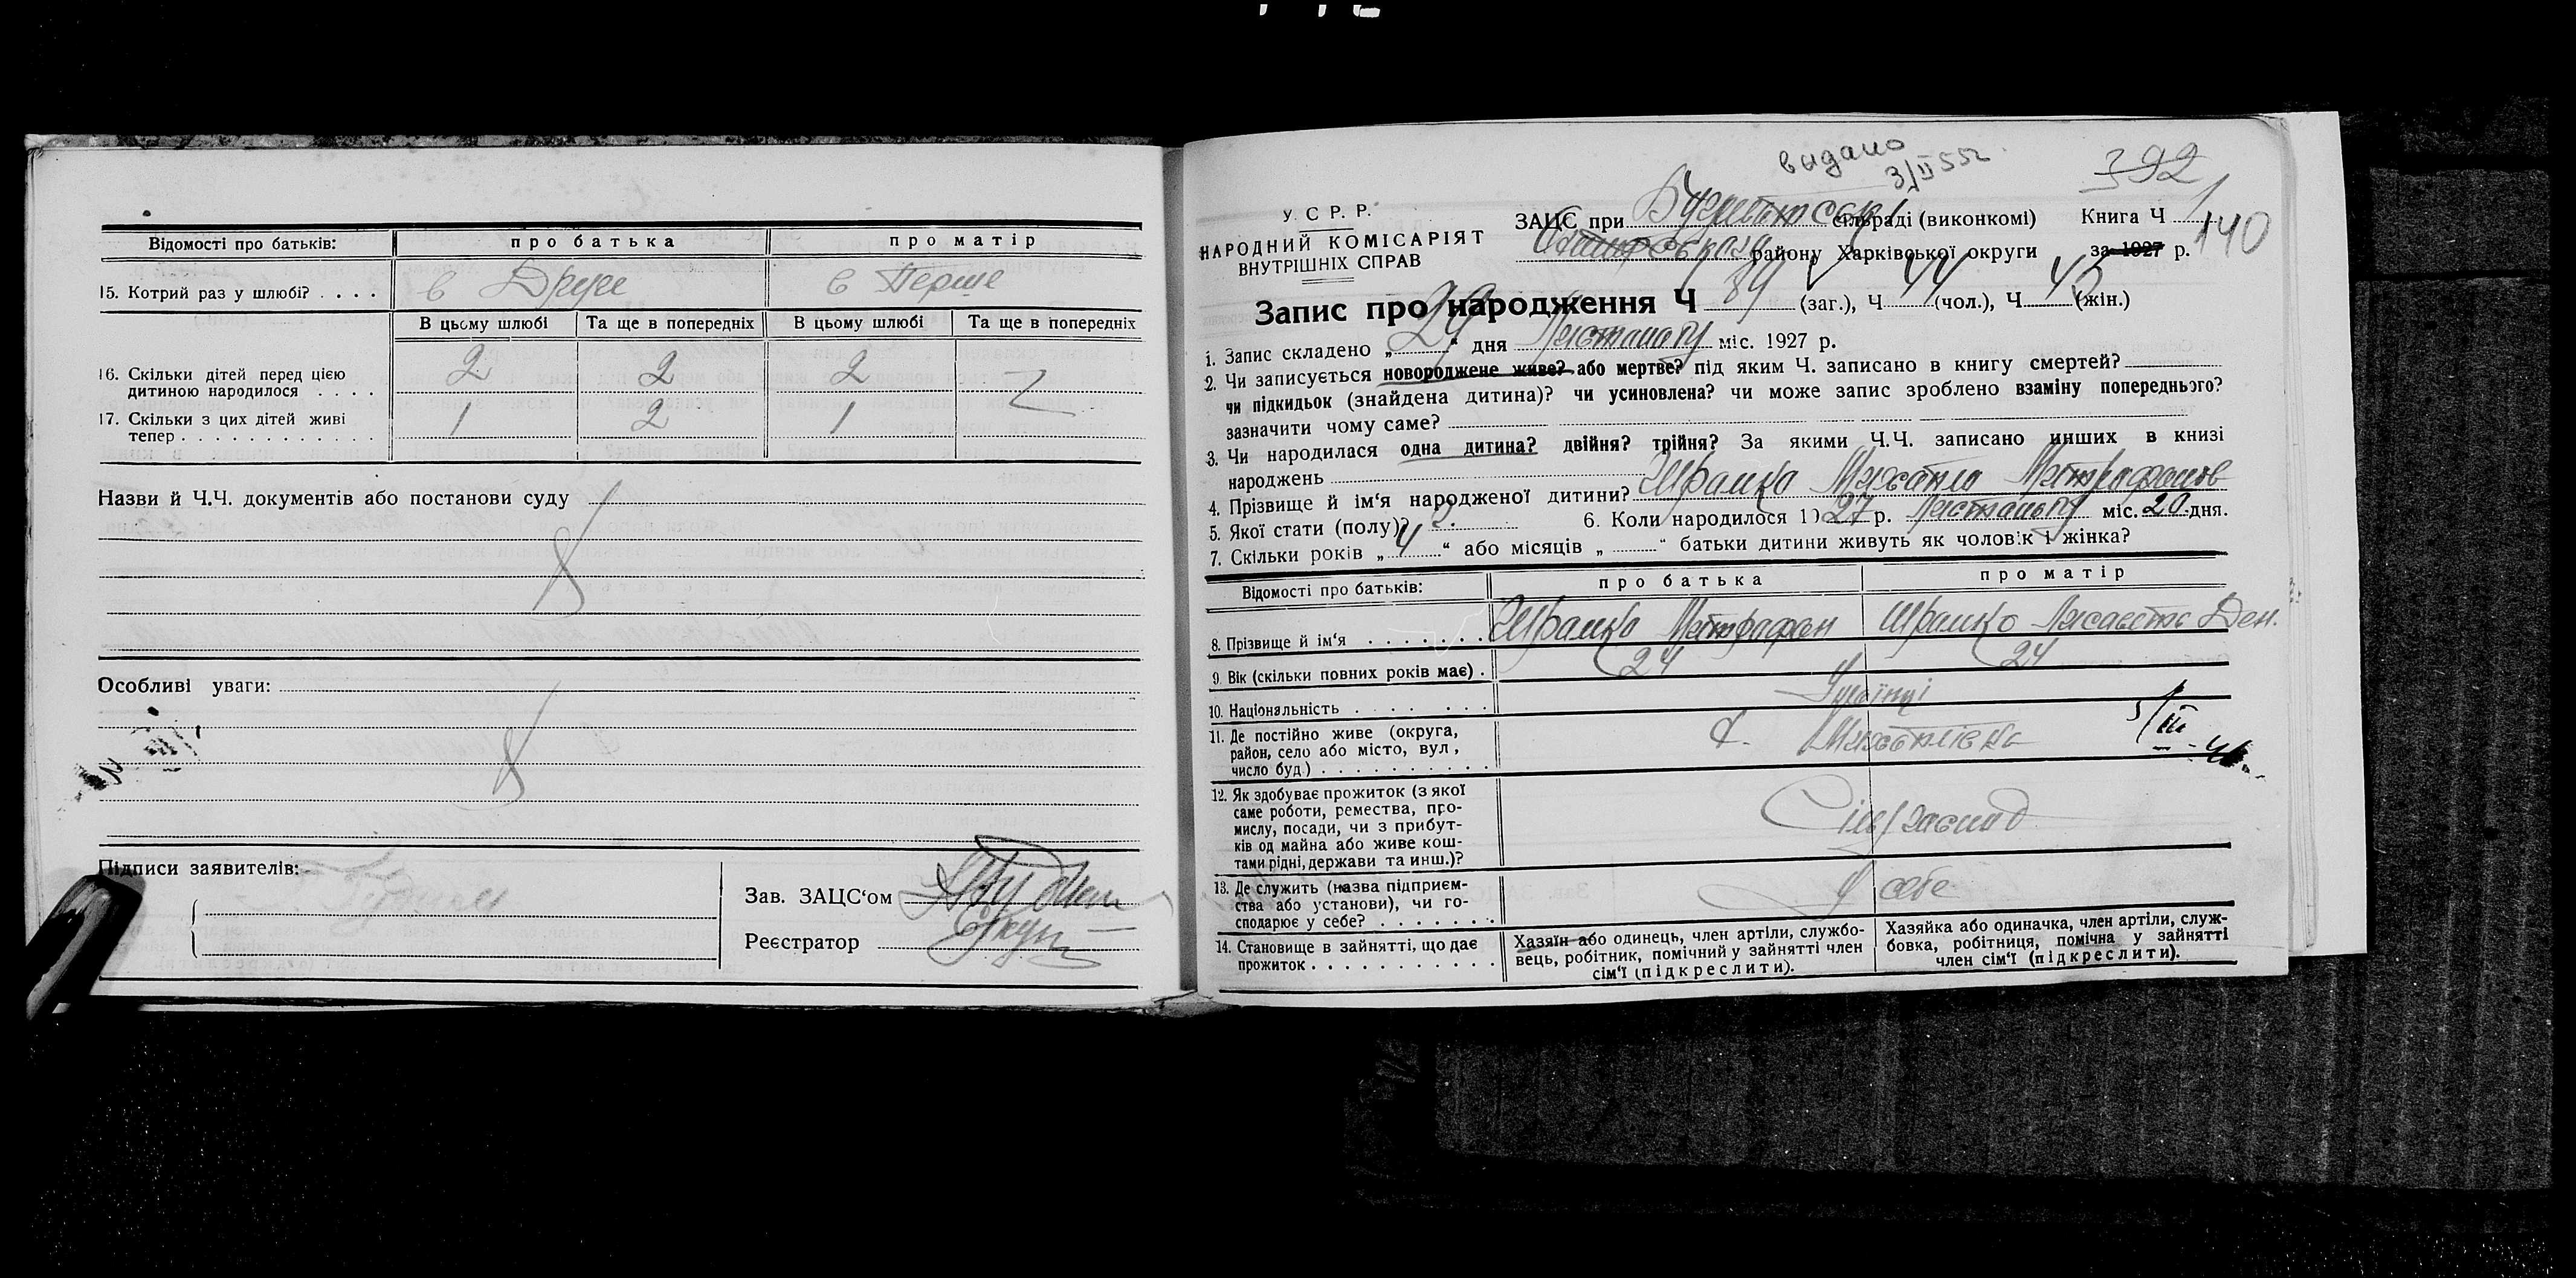 Відомості про батьків: про батька про матір
15. Котрий раз у шлюбі? . . . . в Друге в Перше
В цьому шлюбі Та ще в попередніх В цьому шлюбі Та ще в попередніх
16. Скільки дітей перед цією
дитиною народилося . . . . 2 2 2
17. Скільки з цих дітей живі
тепер . . . . . . . . . . . . 1 2 1
Назви й Ч.Ч. документів або постанови суду
Особливі уваги:
Підписи заявителів:
Зав. ЗАЦС‘ом
Реєстратор
видано
3/II 55г
392
У. С. Р. Р.
НАРОДНИЙ КОМІСАРІЯТ
ВНУТРІШНІХ СПРАВ
ЗАЦС при сільраді (виконкомі) Книга Ч 1
району Харківської округи за 1927 р. 140
Запис про народження Ч 89 (заг.), Ч 44 (чол.), Ч 45 (жін.)
1. Запис складено „ 24 “ дня Листопаду міс. 1927 р.
2. Чи записується новороджене живе? або мертве? під яким Ч. записано в книгу смертей?
чи підкидьок (знайдена дитина)? чи усиновлена? чи може запис зроблено взаміну попереднього?
зазначити чому саме?
3. Чи народилася одна дитина? двійня? трійня? За якими Ч.Ч. записано инших в книзі
народжень
4. Прізвище й ім‘я народженої дитини? Шрамко Михайло Митрофанов
5. Якої стати (полу)? Ч. 6. Коли народилося 1927 р. Листопаду міс. 20 дня.
7. Скільки років „ 4 “ або місяців „ “ батьки дитини живуть як чоловік і жінка?
Відомості про батьків: про батька про матір
8. Прізвище й ім‘я . . . . . . . Шрамко Митрофан Шрамко Лисавета Ден.
9. Вік (скільки повних років має) . 24 24
10. Національність . . . . . . . Українці
11. Де постійно живе (округа,
район, село або місто, вул.,
число буд.) . . . . . . . . . . х. Михайлівка
5/III-46
12. Як здобуває прожиток (з якої
саме роботи, ремества, про-
мислу, посади, чи з прибут-
ків од майна або живе кош-
тами рідні, держави та инш.)? Сільгаспод
13. Де служить (назва підприєм-
ства або установи), чи го-
сподарює у себе? . . . . . . . У себе
14. Становище в зайнятті, що дає
прожиток . . . . . . . . . . .
Хазяїн або одинець, член артіли, службо-
вець, робітник, помічний у зайнятті член
сім‘ї (підкреслити).
Хазяйка або одиначка, член артіли, служ-
бовка, робітниця, помічна у зайнятті
член сім‘ї (підкреслити).